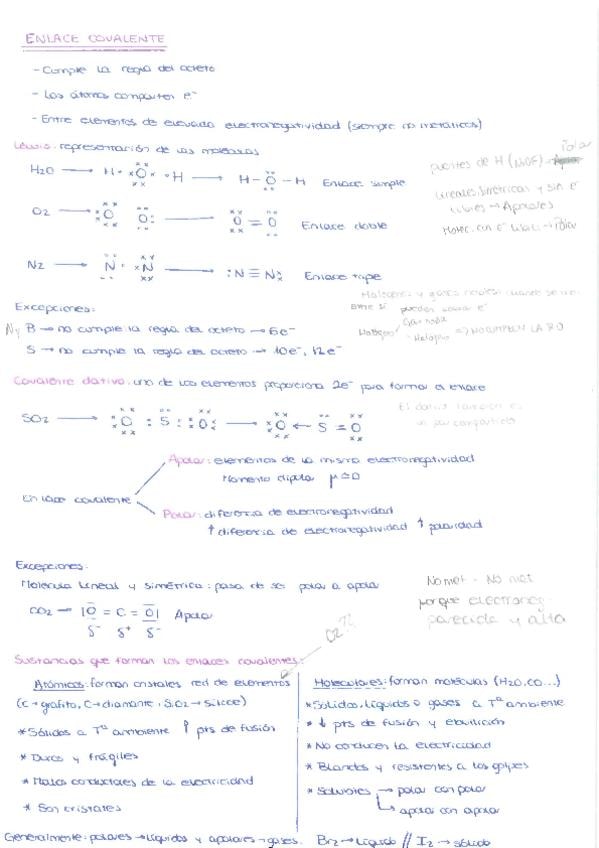 ENLACE COVALENTE
- Cumple la regla del octeto
- Los átomos comparten e⁻
- Entre elementos de elevada electronegatividad (siempre no metálicos)
Lewis: representación de las moléculas
H2O → H · O · H → H - O - H Enlace simple
puentes de H (NOF) → Polar
Lineales, simétricas y sin e⁻ libres → Apolares
Molec. con e⁻ libres → Polar
O2 → O O: → O = O Enlace doble
N2 → N · N → :N ≡ N: Enlace triple
Halógenos y gases nobles: cuando se unen
entre sí pueden
Gas noble
Halógeno - Halógeno => NO CUMPLEN LA RO
Excepciones:
N y B → no cumple la regla del octeto → 6e⁻
S → no cumple la regla del octeto → 10e⁻, 12e⁻
Covalente dativo: uno de los elementos proporciona 2e⁻ para formar el enlace
SO2 → O : S : O : → O ← S = O
El dativo también es
un par compartido
Enlace covalente
Apolar: elementos de la misma electronegatividad
Momento dipolar μ ≃ 0
Polar: diferencia de electronegatividad
↑ diferencia de electronegatividad ↑ polaridad
Excepciones:
Molécula lineal y simétrica: pasa de ser polar a apolar
CO2 → |O = C = O| Apolar
δ⁻ δ⁺ δ⁻
No met - No met
porque electroneg.
parecida y alta
O2??
Sustancias que forman los enlaces covalentes:
Atómicas: forman cristales red de elementos
(C → grafito, C → diamante, SiO2 → sílice)
* Sólidos a Tª ambiente ↑ pts de fusión
* Duros y frágiles
* Malos conductores de la electricidad
* Son cristales
Moleculares: forman moléculas (H2O, CO...)
* Sólidos, líquidos o gases a Tª ambiente
* ↓ pts de fusión y ebullición
* No conducen la electricidad
* Blandos y resistentes a los golpes
* Solventes → polar con polar
→ apolar con apolar
Generalmente: polares → líquidos y apolares → gases. Br2 → líquido // I2 → sólido